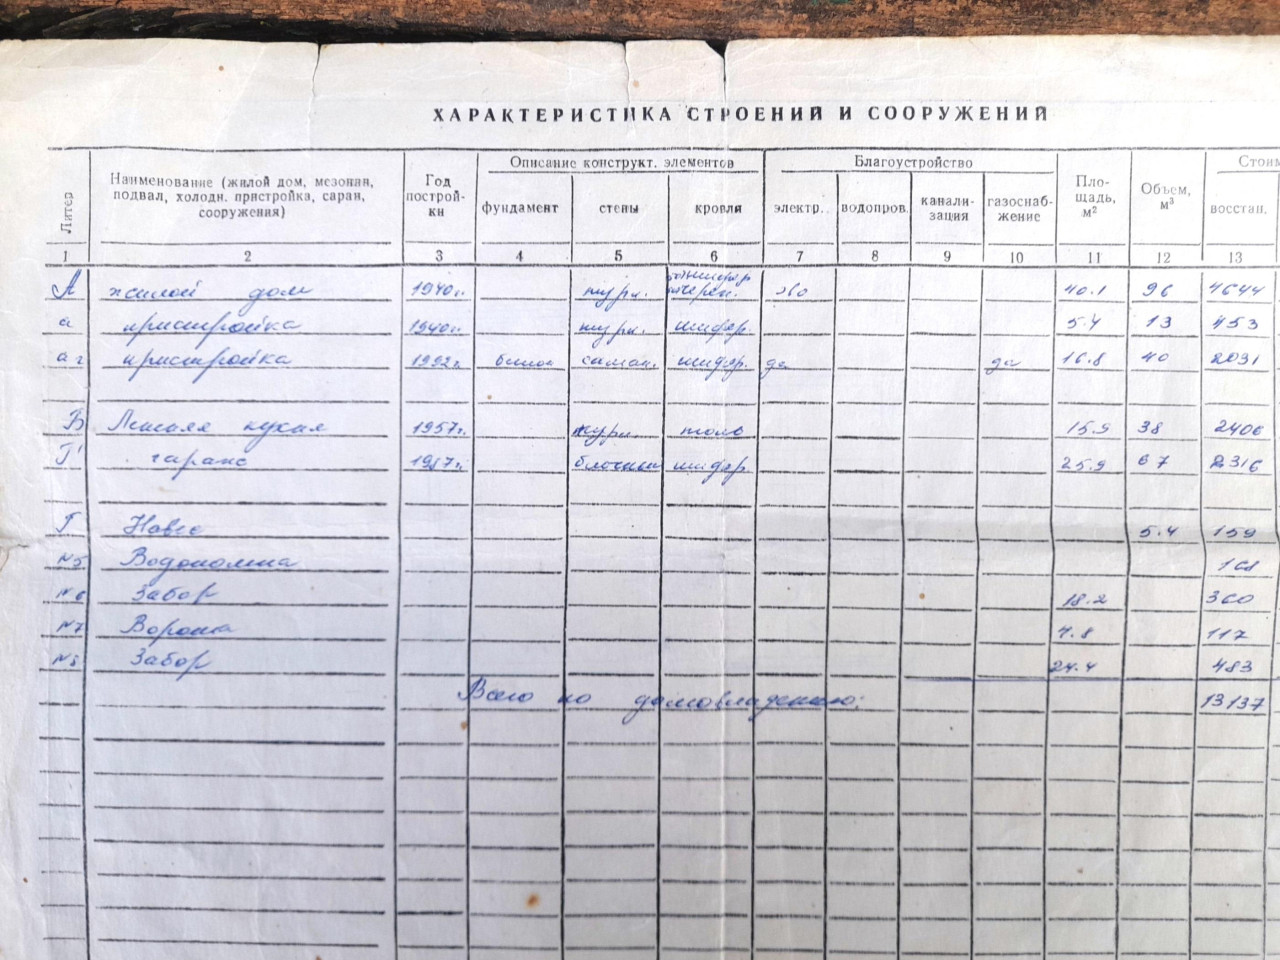 ХАРАКТЕРИСТИКА СТРОЕНИЙ И СООРУЖЕНИЙ
Литер Наименование (жилой дом, мезонин, подвал, холодн. пристройка, сарай, сооружения) Год постройки Описание конструкт. элементов Благоустройство Площадь, м² Объем, м³
фундамент стены кровля электр. водопров. канализация газоснабжение восстан.
1 2 3 4 5 6 7 8 9 10 11 12 13
А жилой дом 1940г. турл. черен. эво 40.1 96 4644
а пристройка 1940г. турл. шифер. 5.4 13 453
пристройка 1992г. бетон саман. шифер. да да 16.8 40 2091
Б Летняя кухня 1957г. турл. толь 15.9 38 2406
Г' гараж блочный шифер. 25.9 67 2316
Г. Навес 5.4 159
N5 Водопомпа 168
N6 Забор 18.2 360
N7 Ворота 117
N8 Забор 24.4 483
Всего по домовладению: 13137